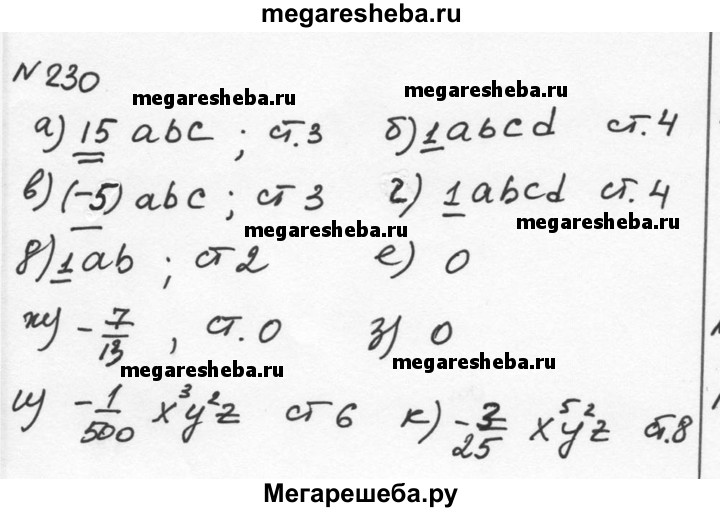 megaresheba.ru
N 230
megaresheba.ru megaresheba.ru
а) 15 abc ; ст.3 б) 1abcd ст.4
в) (-5) abc ; ст 3 г) 1abcd ст.4
megaresheba.ru megaresheba.ru
д) 1ab ; ст 2 е) 0
ж) -7/13 , ст.0 з) 0
megaresheba.ru megaresheba.ru
и) -1/500 x³y²z ст 6 к) -3/25 x⁵y²z ст.8
Мегарешеба.ру